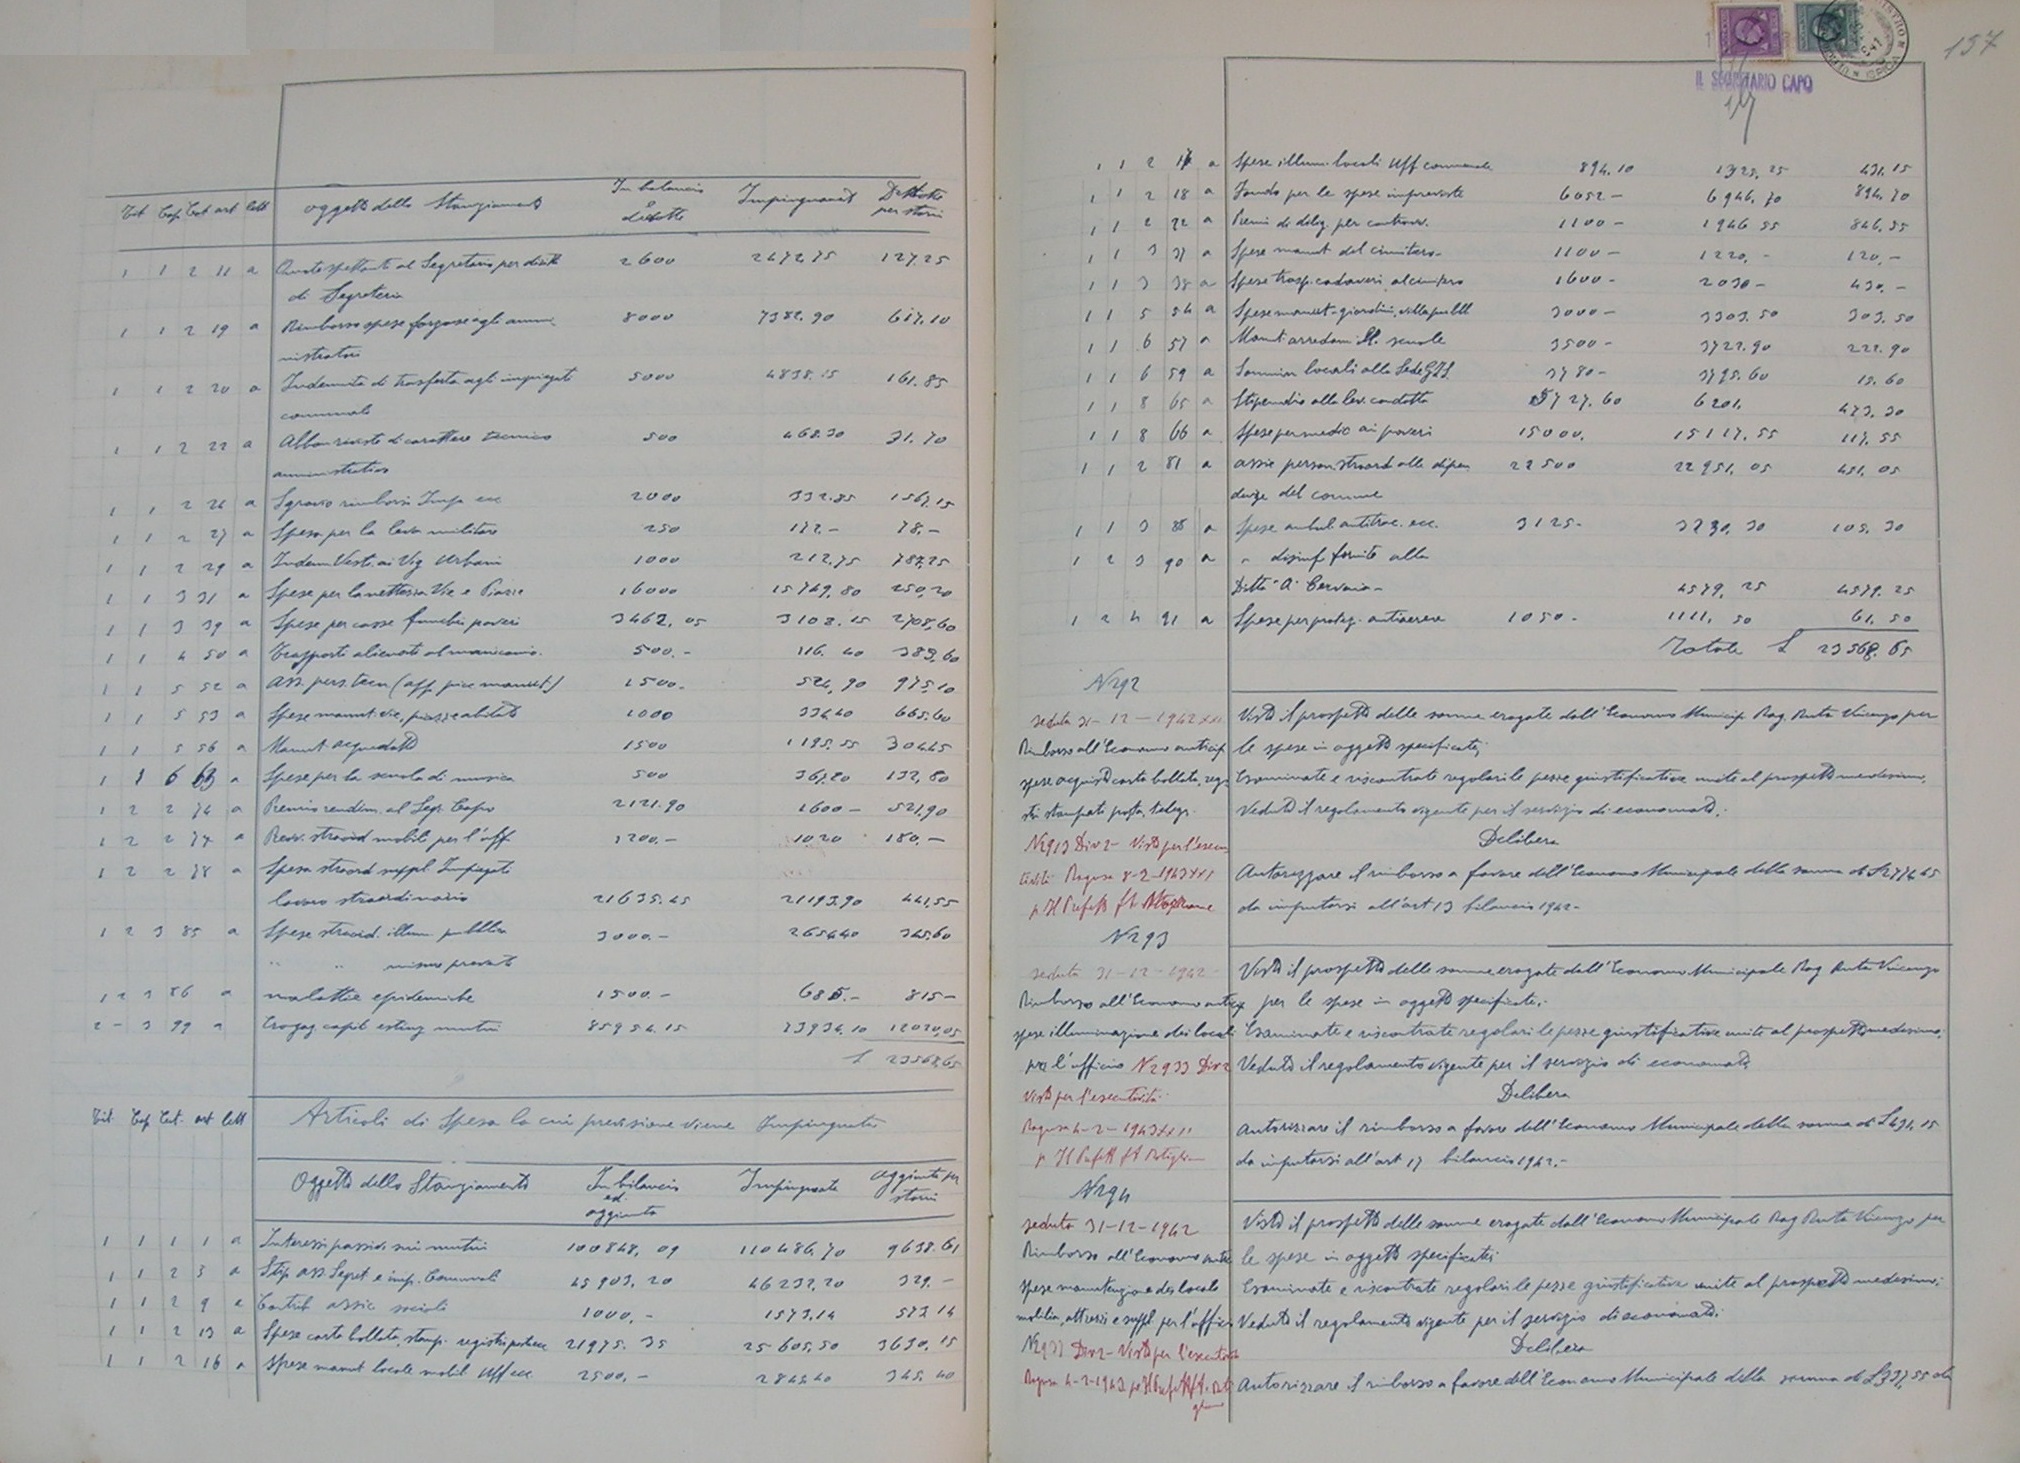 Tit Cap Cat art lett oggetto dello Stanziamento In bilancio e didotto Impinguamento Dedotto per storni
1 1 2 11 a Quote spettanti al Segretario per diritti 2600 2472,75 127.25
di Segreteria
1 1 2 19 a Rimborso spese forzose agli ammi 8000 7382.90 617.10
nistratori
1 1 2 20 a Indennità di trasferta agli impiegati 5000 4838.15 161.85
comunali
1 1 2 22 a Abbon riviste di carattere tecnico 500 468.30 31.70
amministrativo
1 1 2 26 a Sgravio rimborsi Imp. ecc 2000 332.85 1567,15
1 1 2 27 a Spesa per la leva militare 250 172.- 78.-
1 1 2 29 a Indenn Vest. ai Vig Urbani 1000 212,75 787,25
1 1 3 31 a Spese per la nettezza Vie e Piazze 16000 15749,80 250,20
1 1 3 39 a Spese per casse funebri poveri 3462,05 3108.15
1 1 4 50 a Trasporti alienati al manicomio. 500.- 116.40 383,60
1 1 5 52 a Ass. pers. tecn 1500. 524,90 975,10
1 1 5 53 a Spese manut. vie, piazze abitato 1000 334,40 665,60
1 1 5 56 a Manut. acquedotto 1500 1195.55 304,45
1 1 6 63 a Spese per la scuola di musica 500 367,20 132,80
1 2 2 74 a Premio rendim. al Segr Capo 2121.90 1600- 521,90
1 2 2 77 a straord mobili per l'uff 1200.- 1020 180.-
1 2 2 78 a Spesa straord suppl Impiegati
lavoro straordinario 21635.45 21193,90 441,55
1 2 3 85 a Spese straord. illum. pubblica 3000.- 2654,40 345,60
" " misure prevent
1 2 3 86 a malattie epidemiche 1500.- 685.- 815-
2 - 3 99 a Erogaz capit esting mutui 85954.15 73934,10 12020,05
£ 23568,65
Tit Cap Cat. art lett Articoli di Spesa la cui previsione viene Impinguata
Oggetto dello Stanziamento In bilancio ed. aggiunta Impinguate aggiunta per storni
1 1 1 1 a Interessi passivi sui mutui 100848,09 110486,70 9638.61
1 1 2 3 a Stip ass Segret e imp. Comunali 45903,20 46232,20 329.-
1 1 2 9 a Contrib assic sociali 1000,- 1573,14 573 14
1 1 2 13 a Spese carta bollata, stamp. registri 21975.35 25605,50 3630,15
1 1 2 16 a Spese manut locale mobil Uff ecc 2500,- 2845,40 345,40
157
IL SEGRETARIO CAPO
1 1 2 17 a Spese illum. locali Uff comunale 894.10 1325,25 431,15
1 1 2 18 a Fondo per le spese impreviste 6052- 6946,70 894,70
1 1 2 22 a Premi di dilig. per contravv. 1100- 1946 55 846,55
1 1 3 37 a Spese manut del cimitero- 1100- 1220,- 120,-
1 1 3 38 a Spese trasp. cadaveri al cimitero 1600- 2030- 430.-
1 1 5 54 a Spese manut-giardini, villa pubbl 3000- 3303,50 303,50
1 1 6 57 a Manut arredam. scuole 3500- 3722.90 222.90
1 1 6 59 a Sommin locali alla Sede GIL 3780- 3795.60 15.60
1 1 8 65 a Stipendio alla lev. condotta 5727.60 6201, 473,30
1 1 8 66 a Spese per medic ai poveri 15000, 15117.55 117,55
1 1 2 81 a assic person straord alle dipen 22500 22951,05 451,05
denze del comune
1 1 3 88 a Spese ambul. antitrac. ecc. 3125- 3230,30 105,30
1 2 3 90 a " disinf fornite alla
Ditta A. Cervaia- 4579,25 4579,25
1 2 4 91 a Spese per proteg. antiaerea 1050- 1111,50 61,50
Totale £ 23568.65
N 292
Seduta 31-12-1942 XXI
Rimborso all'Economo anticip
spese acquisto carta bollata, regi
stri stampati posta, telegr.
N 2913 Div 2- Visto per l'esecu
tività Ragusa 8-2-1943 XXI
p Il Prefetto
Visto il prospetto delle somme erogate dall'Economo Municip Rag. Ruta Vincenzo per
le spese in oggetto specificate;
Esaminate e riscontrate regolari le pezze giustificative unite al prospetto medesimo.
Veduto il regolamento vigente per il servizio di economato;
Delibera
Autorizzare il rimborso a favore dell'Economo Municipale della somma di £ 2774,45
da imputarsi all'art 13 bilancio 1942-
N 293
Seduta 31-12-1942-
Rimborso all'Economo antic
spese illuminazione dei locali
per l'ufficio N 2933 Div 2
Visto per l'esecutività
Ragusa 4-2-1943 XXI
p Il Prefetto
Visto il prospetto delle somme erogate dall'Economo Municipale Rag Ruta Vincenzo
per le spese in oggetto specificate.-
Esaminate e riscontrate regolari le pezze giustificative unite al prospetto medesimo.
Veduto il regolamento vigente per il servizio di economato
Delibera
Autorizzare il rimborso a favore dell'Economo Municipale della somma di £ 431,15
da imputarsi all'art 17 bilancio 1942.-
N 294
Seduta 31-12-1942
Rimborso all'Economo antic
spese manutenzione dei locali
mobilia, attrezzi e suppl per l'ufficio
Div 2- Visto per l'esecutività
Ragusa 4-2-1943 p Il Prefetto
Visto il prospetto delle somme erogate dall'Economo Municipale Rag Ruta Vincenzo per
le spese in oggetto specificate;
Esaminate e riscontrate regolari le pezze giustificative unite al prospetto medesimo;
Veduto il regolamento vigente per il servizio di economato;
Delibera
Autorizzare il rimborso a favore dell'Economo Municipale della somma di £ 397,55 da